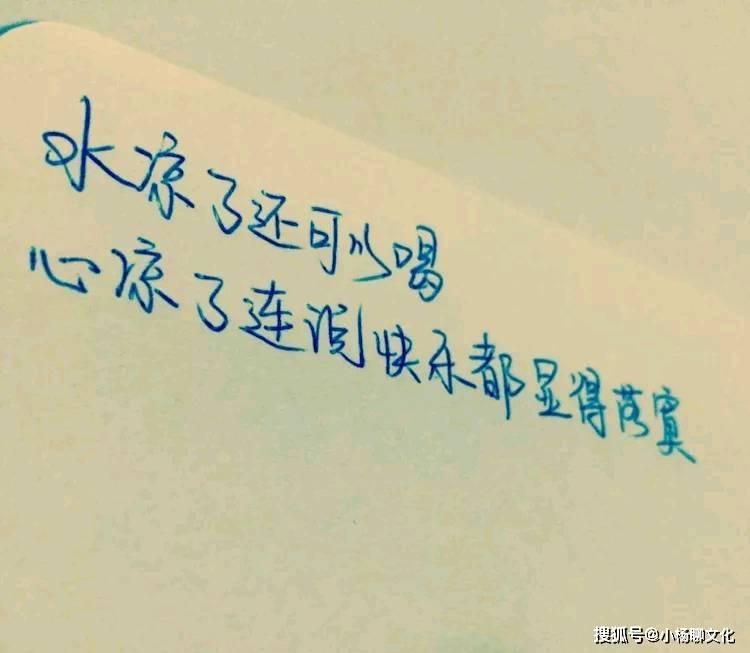 水凉了还可以喝
心凉了连说快乐都显得落寞
搜狐号@小杨聊文化